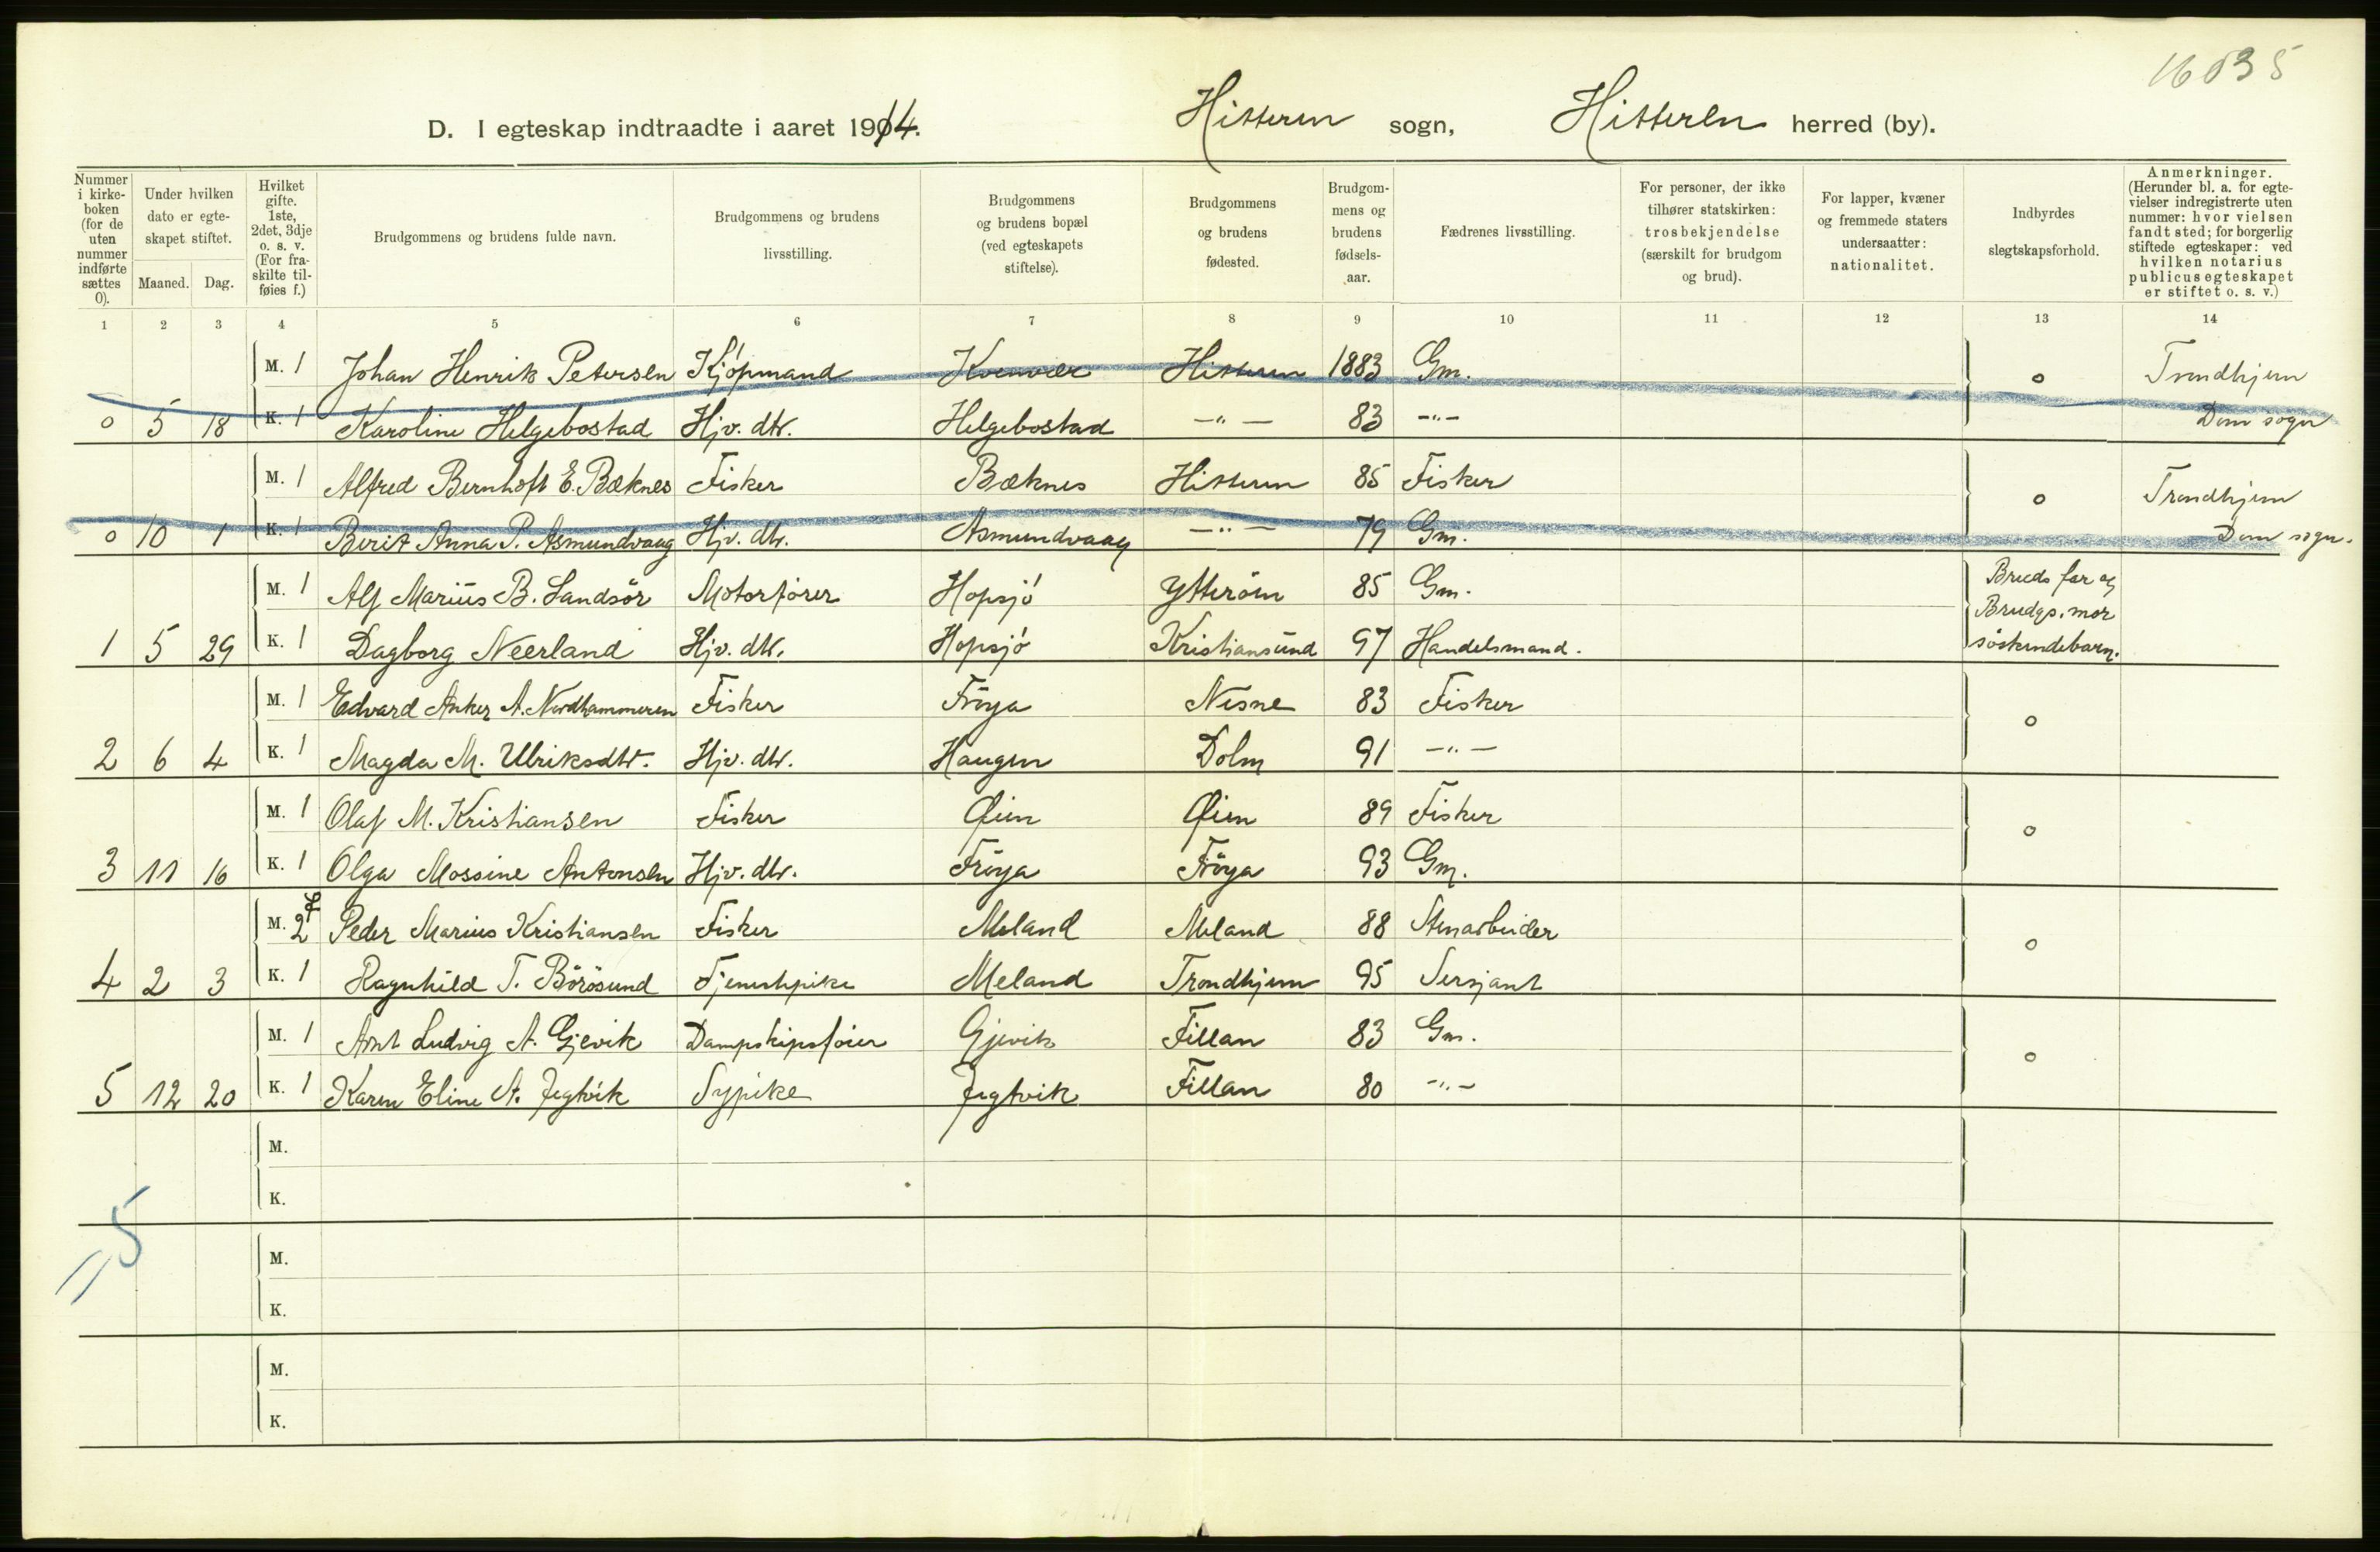 16 635
D. I egteskap indtraadte i aaret 1914. Hitteren sogn, Hitteren herred (by).
Nummer i kirkeboken (for de uten nummer indførte sættes 0). | Under hvilken dato er egteskapet stiftet. Maaned. Dag. | Hvilket gifte. 1ste, 2det, 3dje o. s. v. (For fraskilte tilføies f.) | Brudgommens og brudens fulde navn. | Brudgommens og brudens livsstilling. | Brudgommens og brudens bopæl (ved egteskapets stiftelse). | Brudgommens og brudens fødested. | Brudgommens og brudens fødselsaar. | Fædrenes livsstilling. | For personer, der ikke tilhører statskirken: trosbekjendelse (særskilt for brudgom og brud). | For lapper, kvæner og fremmede staters undersaatter: nationalitet. | Indbyrdes slegtskapsforhold. | Anmerkninger. (Herunder bl. a. for egtevielser indregistrerte uten nummer: hvor vielsen fandt sted; for borgerlig stiftede egteskaper: ved hvilken notarius publicus egteskapet er stiftet o. s. v.)
1 2 3 4 5 6 7 8 9 10 11 12 13 14
M. 1 Johan Henrik Petersen Kjöpmand Hitteren 1883 Gm. o Trondhjem
0 5 18 K. 1 Karoline Helgebostad Hjv. dtr. Helgebostad —"— 83 —"— Dom sogn
M. 1 Alfred Bernhoft E. Bæknes Fisker Bæknes Hitteren 85 Fisker o Trondhjem
0 10 1 K. 1 Berit Anna P. Asmundvaag Hjv. dtr. Asmundvaag —"— 79 Gm. Dom sogn.
M. 1 Alf Marius B. Sandsör Motorförer Hopsjö Ytteröen 85 Gm. Bruds far og Brudgs. mor
1 5 29 K. 1 Dagborg Neerland Hjv. dtr. Hopsjö Kristiansund 97 Handelsmand. söskendebarn.
M. 1 Edvard Anker A. Nordhammeren Fisker Fröya Nesne 83 Fisker o
2 6 4 K. 1 Magda M. Ulriksdtr. Hjv. dtr. Haugen Dolm 91 —"—
M. 1 Olaf M. Kristiansen Fisker Øien Øien 89 Fisker o
3 11 16 K. 1 Olga Mossine Antonsen Hjv. dtr. Fröya Fröya 93 Gm.
M. 2 f Peder Marius Kristiansen Fisker Meland Meland 88 Stenarbeider o
4 2 3 K. 1 Ragnhild T. Börösund Tjenestpike Meland Trondhjem 95 Sersjant
M. 1 Arnt Ludvig A. Gjevik Dampskipsföier Gjevik Fillan 83 Gm. o
5 12 20 K. 1 Karen Eline A. Jegtvik Sypike Jegtvik Fillan 80 —"—
M.
K.
= 5
M.
K.
M.
K.